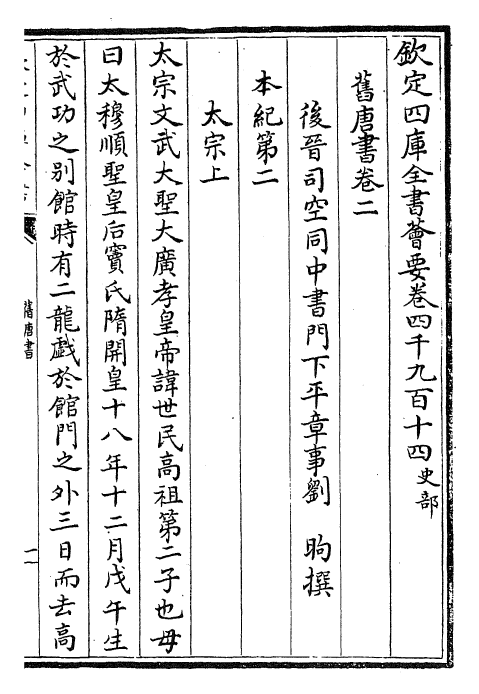 欽定四庫全書薈要卷四千九百十四史部
舊唐書卷二
後晉司空同中書門下平章事劉昫撰
本紀第二
太宗上
太宗文武大聖大廣孝皇帝諱世民高祖第二子也母
曰太穆順聖皇后竇氏隋開皇十八年十二月戊午生
於武功之别館時有二龍戲於館門之外三日而去高
舊唐書
一